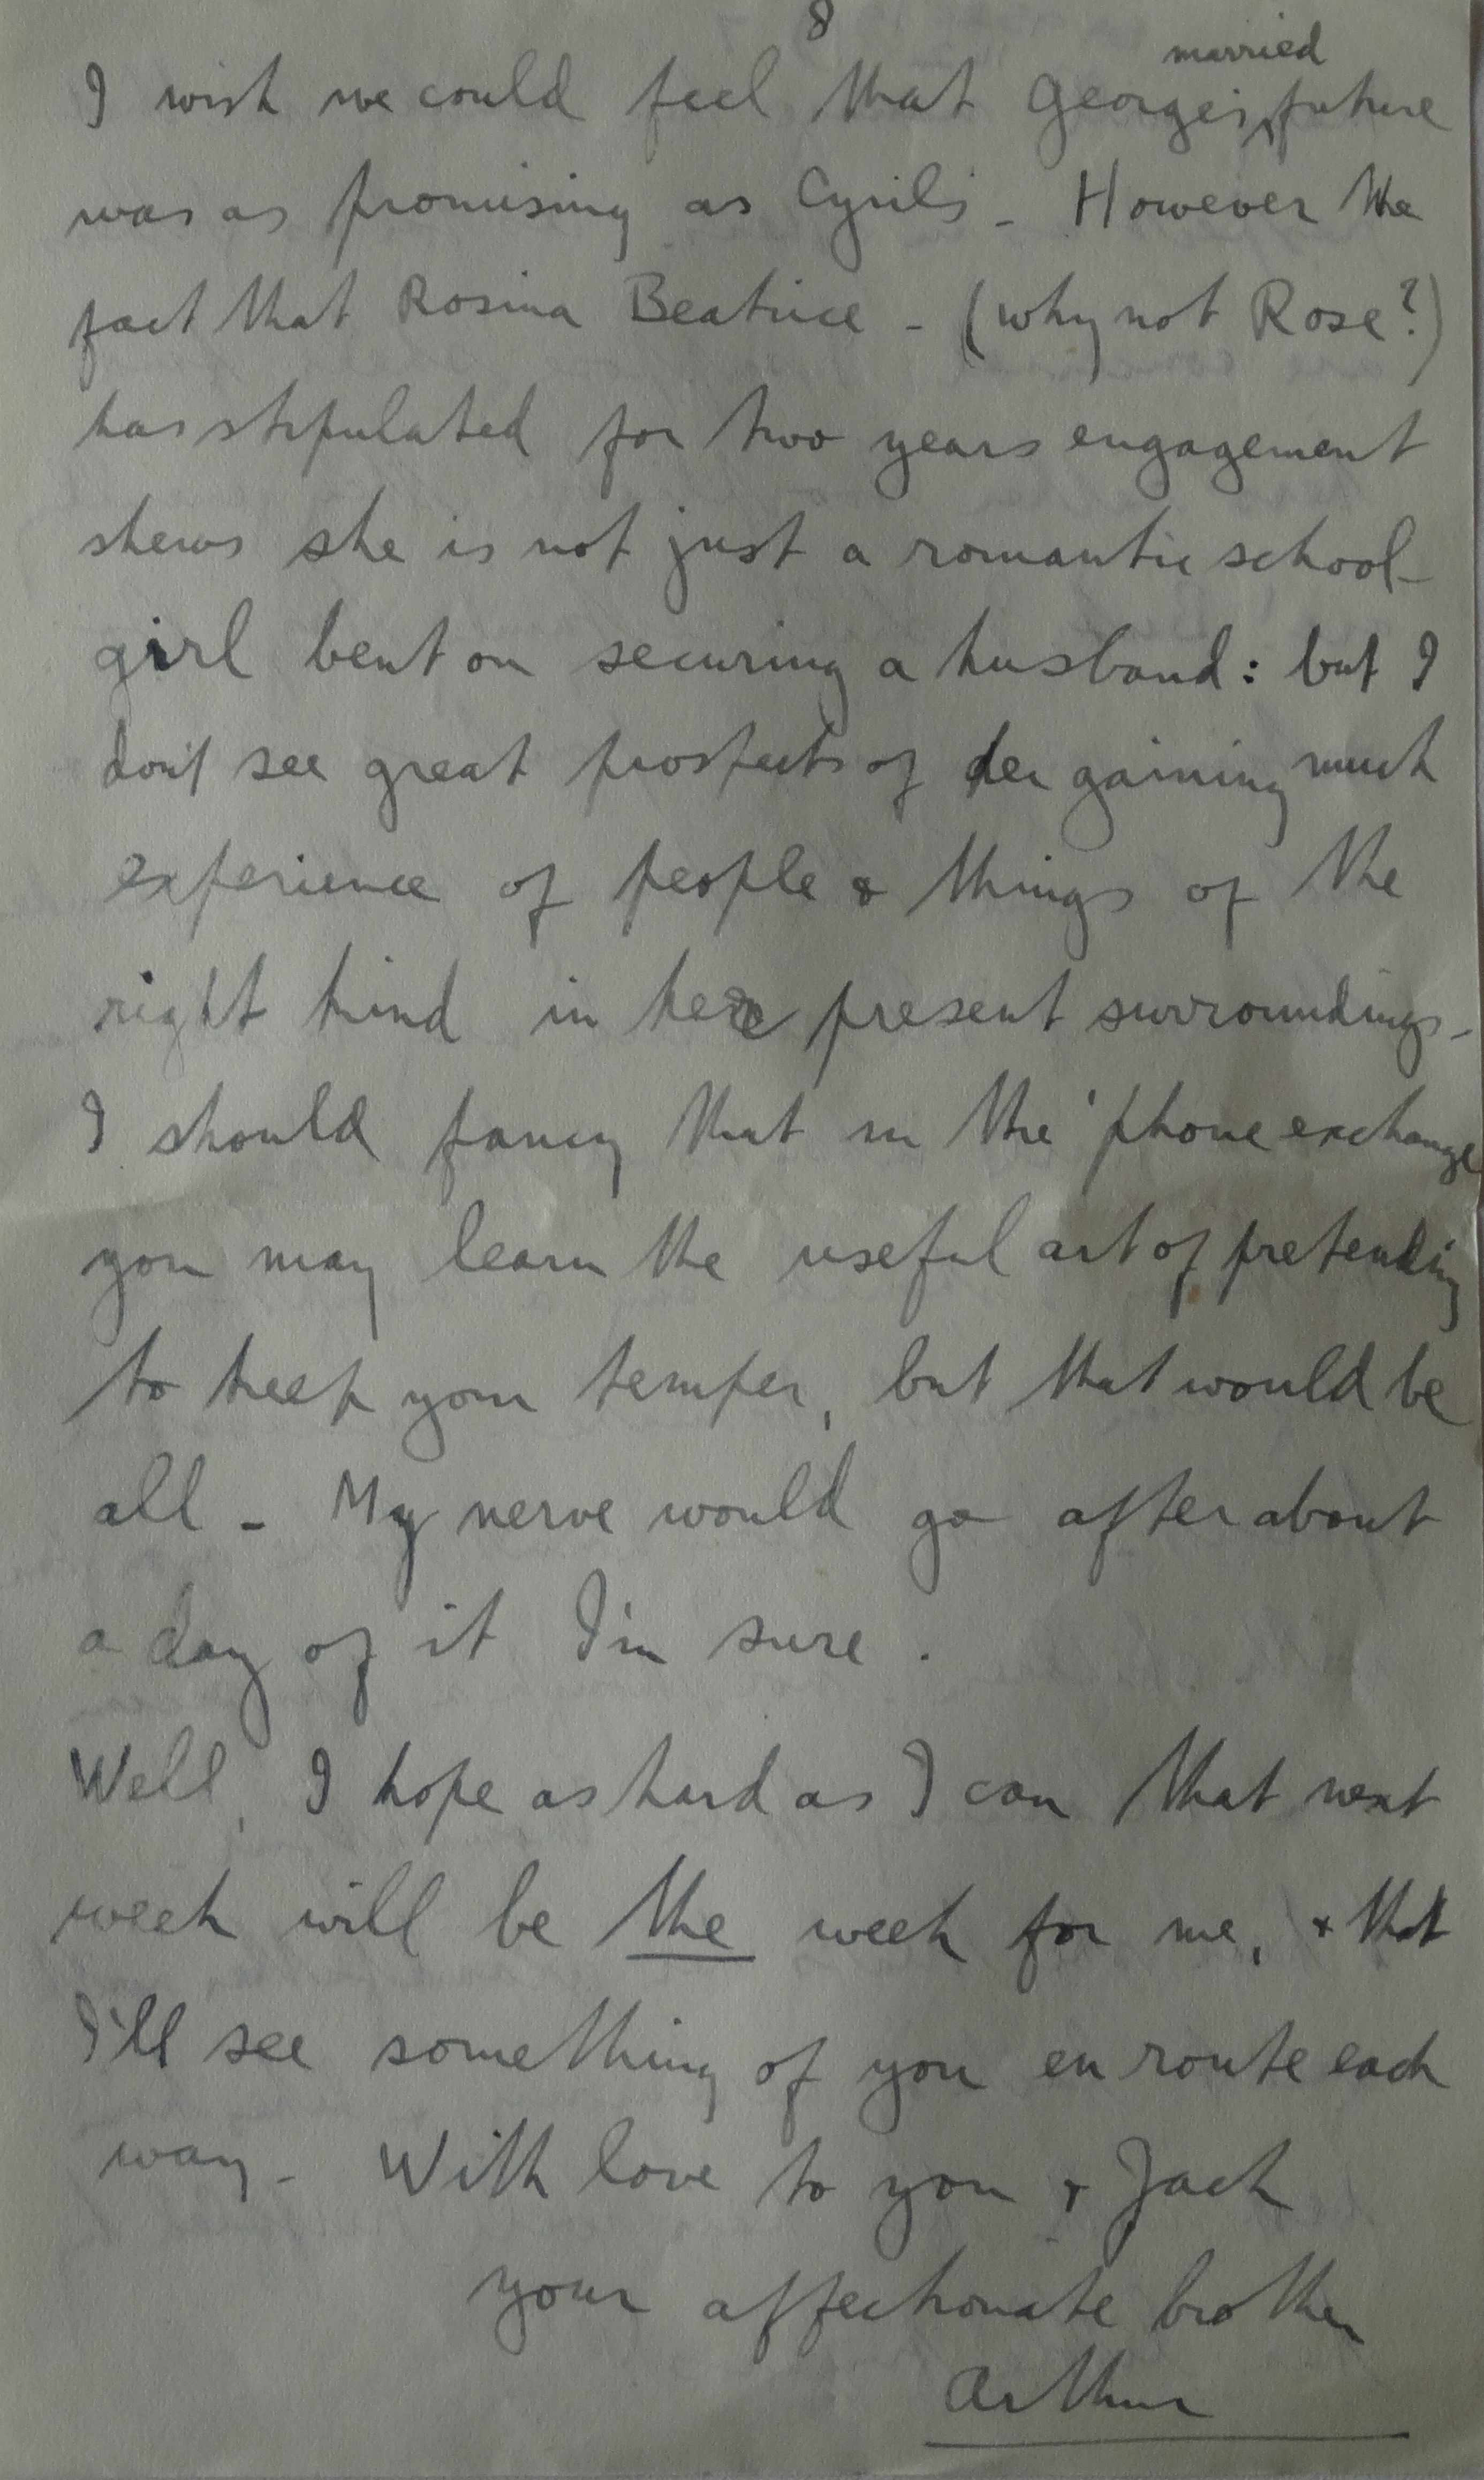 8
married
I wish we could feel that George's ‸ future
was as promising as Cyril's - However the
fact that Rosina Beatrice - (why not Rose?)
has stipulated for two years engagement
shews she is not just a romantic school-
girl bent on securing a husband: but I
don't see great prospects of her gaining much
experience of people & things of the
right kind in here present surroundings -
I should fancy that in the 'phone exchange
you may learn the useful art of pretending
to keep your temper, but that would be
all - My nerve would go after about
a day of it I'm sure.
Well, I hope as hard as I can that next
week will be the week for me, & that
I'll see something of you en route each
way - With love to you & Jack
your affectionate brother
Arthur